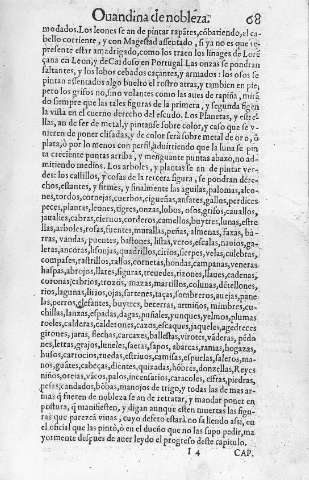 Ouandina de nobleza. 68
modados. Los leones se an de pintar rapãtes, cõbatiendo, el ca-
bello corriente, y con Magestad assentado, si ya no es que re-
presente estar amadrigado, como los traen los linages de Lore
çana en Leon, y de Cardoso en Portugal Las onzas se pondran
saltantes, y los lobos cebados caçantes, y armados: los osos se
pintan assentados algo buelto el rostro atras, y tambien en pie,
pero los grifos no, sino volantes como las aues de rapiña, mirã
do siempre que las tales figuras de la primera, y segunda tigan
la vista en el cuerno derecho del escudo. Los Planetas, y estre-
llas, an de ser de metal, y pintanse sobre color, y caso que se v-
nieren de poner elisadas, y de color será sobre metal de oro, ô
plata, ò por lo menos con perfil, aduirtiendo que la luna se pin
ta creciente puntas arriba, y menguante puntas abaxo, no ad-
mitiendo medios. Los arboles, y plantas se an de pintar ver-
des: los castillos, y cosas de la tercera figura, se pondran dere-
chos, estantes, y firmes, y finalmente las aguilas, palomas, alco-
nes, tordos, cornejas, cuerbos, cigueñas, ansares, gallos, perdices
peces, plantas, leones, tigres, onzas, lobos, osos, grifos, cauallos,
jaualies, cabras, cieruos, corderos, camellos, buytres, lunas, estre
llas, arboles, rosas, fuentes, murallas, peñas, almenas, faxas, ba-
rras, vandas, puentes, bastones, listas, veros, escalas, nauios, ga-
leras, ancoras, lisonjas, quadrillos, cirios, sierpes, velas, culebras,
compases, rastrillos, rallos, cornetas, hondas, campanas, veneras
haspas, abrojos, llares, figuras, treuedes, rizones, llaues, cadenas,
coronas, cabrios, trozos, mazas, martillos, colunas, dètellones,
rios, lagunas, lirios, ojas, sartenes, taças, sombreros, auejas, pane
las, perros, elefantes, buytres, becerras, armiños, mimbres, cu-
chillas, lanzas, espadas, dagas, puñales, yunques, yelmos, plumas
roeles, calderas, calderones, cazos, escaques, jaqueles, agedreces
girones, jaras, flechas, carcaxes, ballestas, virotes, váderas, pédo
nes, letras, grajos, lunetes, faeras, sapos, abarcas, ramas, hogazas,
busos, carrocios, ruedas, estriuos, camisas, espuelas, saleros, ma-
nos, guátes, cabeças, dientes, quixadas, hôbres, donzellas, Reyes
niños, oreias, vacos, palos, incensarios, caracoles, cifras, piedras,
pesas, candados, bôbas, manojos de trigo, y todas las de mas ar-
mas q̃ fueren de nobleza se an de retratar, y mandar poner en
postura, q̃ manifiesten, y digan aunque esten muertas las figu-
ras que parezca vinas, cuyo defeto estará no saliendo assi, en
el oficial que las pintò, ò en el dueño que no las supo pedir, ma
yormente despues de auer leydo el progreso deste capitulo.
I 4 CAP.